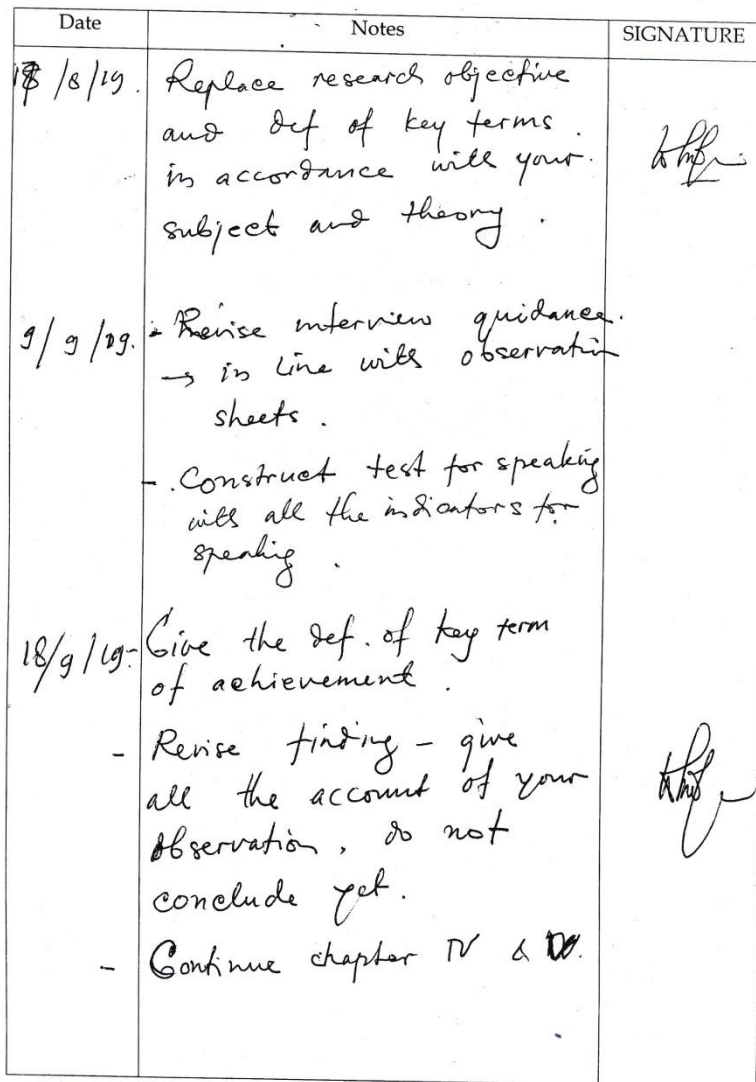 Date Notes SIGNATURE
/8/19. Replace research objective
and def of key terms.
in accordance with your
subject and theory.
9/9/19. - Revise interview guidance.
→ in line with observation
sheets.
- Construct test for speaking
with all the indicators for
speaking.
18/9/19- Give the def. of key term
of achievement.
- Revise finding - give
all the account of your
observation, do not
conclude yet.
- Continue chapter IV &